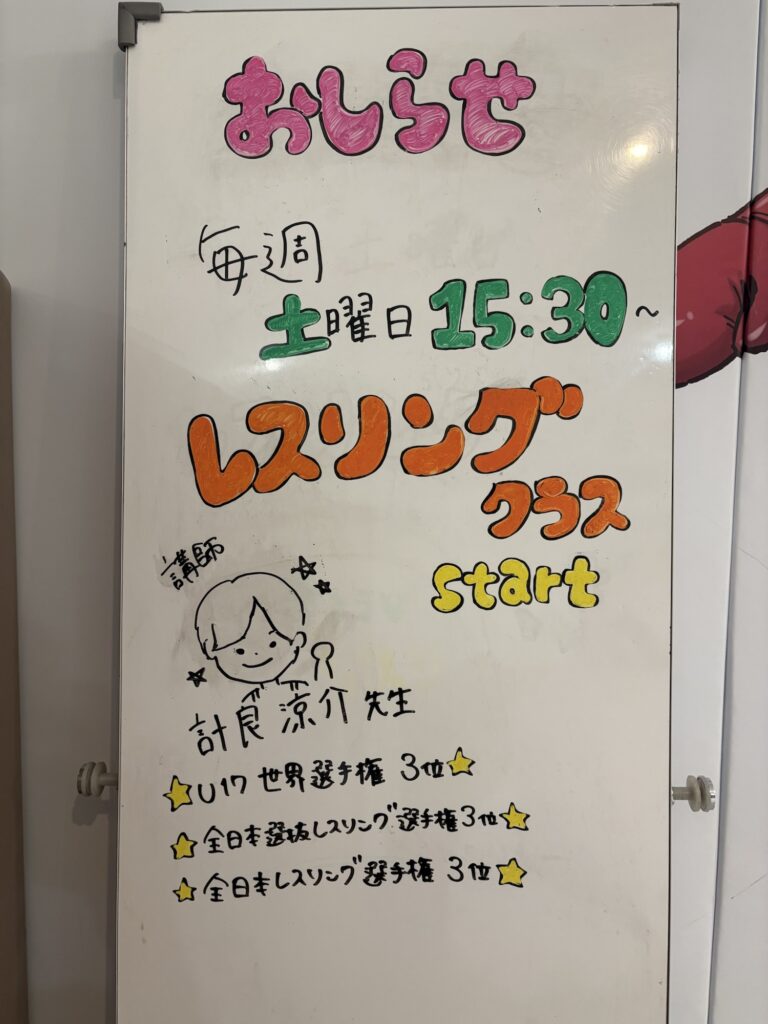 おしらせ
毎週
土曜日 15:30~
レスリング
クラス
start
講師
計良 涼介 先生
U17 世界選手権 3位
全日本選抜レスリング選手権3位
全日本レスリング選手権 3位